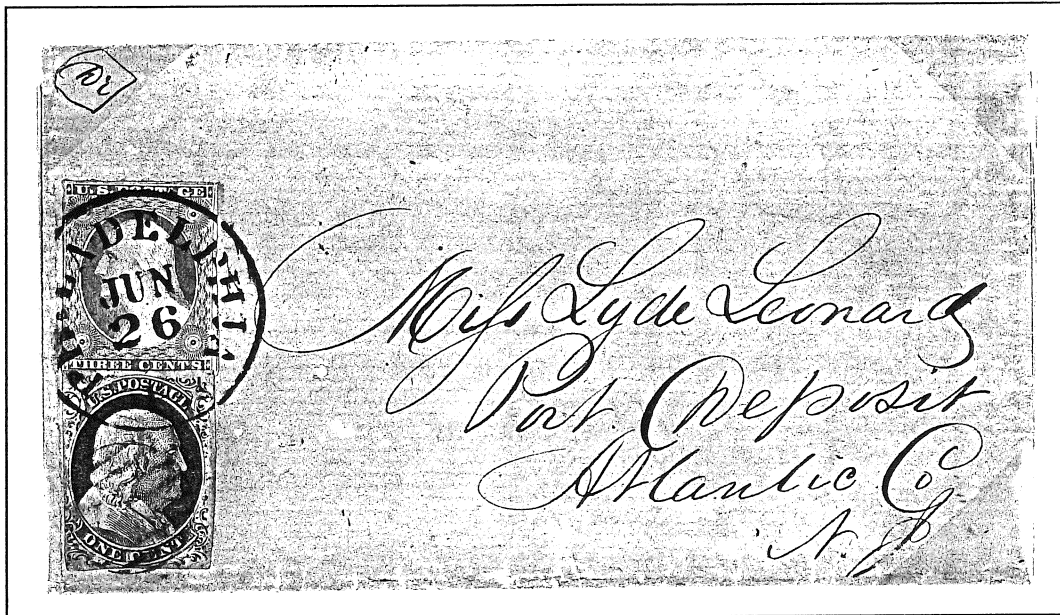 U.S. POSTAGE
PHILADELPHIA
JUN
26
THREE CENTS
U.S. POSTAGE
ONE CENT
Miss Lyde Leonard
Port Deposit
Atlantic Co
N. J.